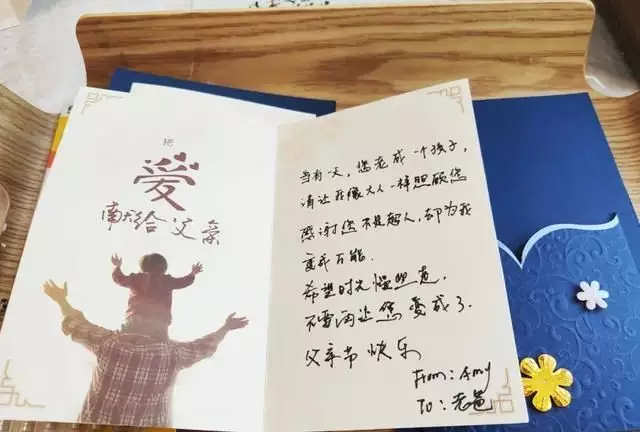 把
爱
献给父亲
当有一天，您老成一个孩子，
请让我像大人一样照顾您
感谢您不是超人，却为我
变成万能.
希望时光慢
不要再让您变
父亲节快乐
From: Amy
To: 老爸